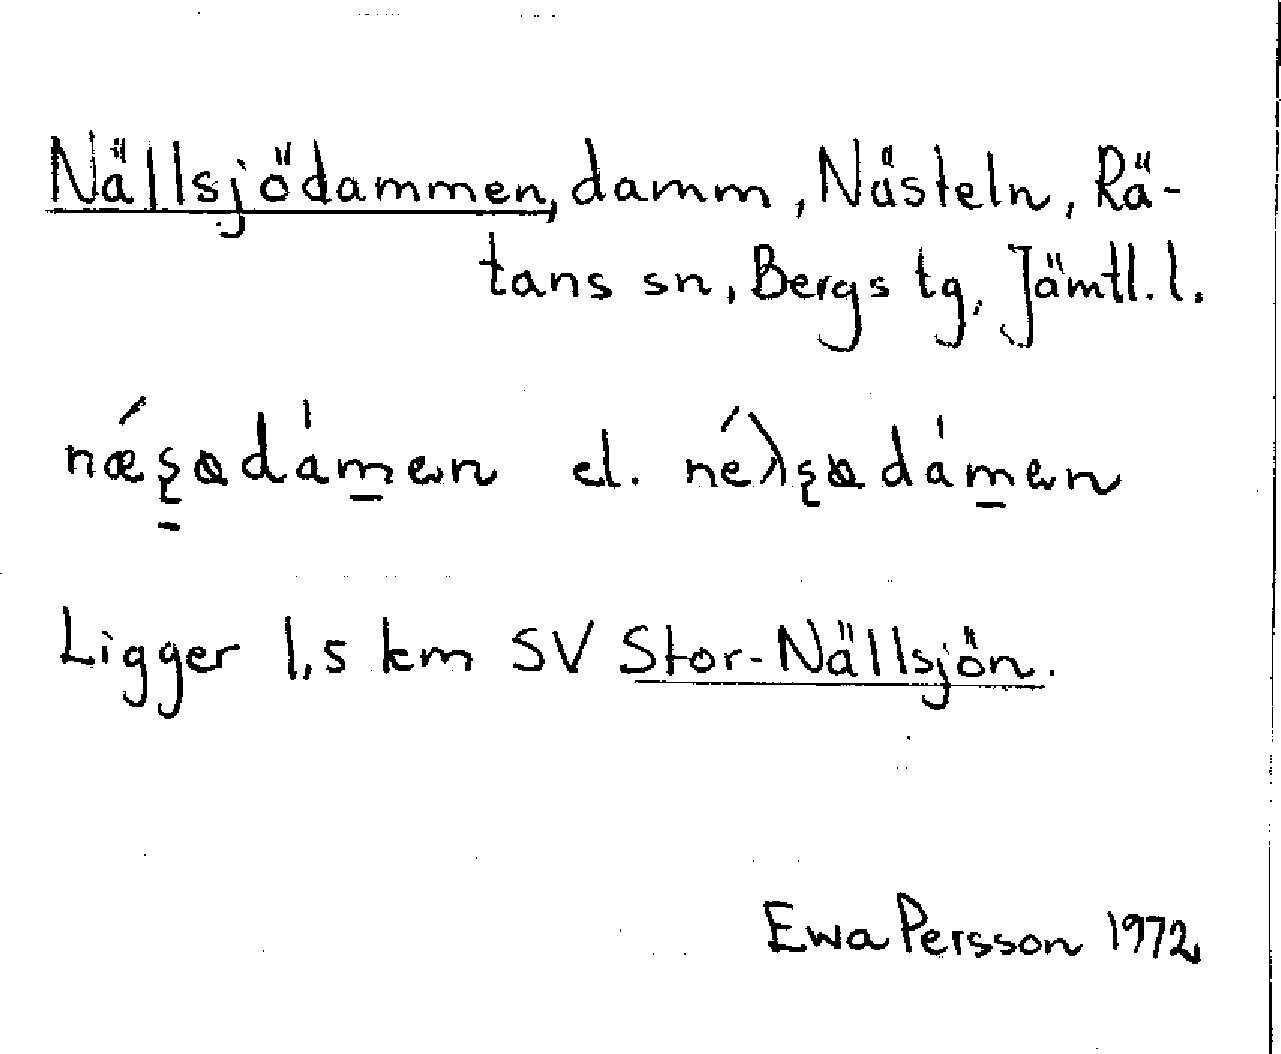 Nällsjödammen, damm, Nästeln, Rä-
tans sn, Bergs tg, Jämtl. l.
el.
Ligger 1,5 km SV Stor-Nällsjön.
Ewa Persson 1972